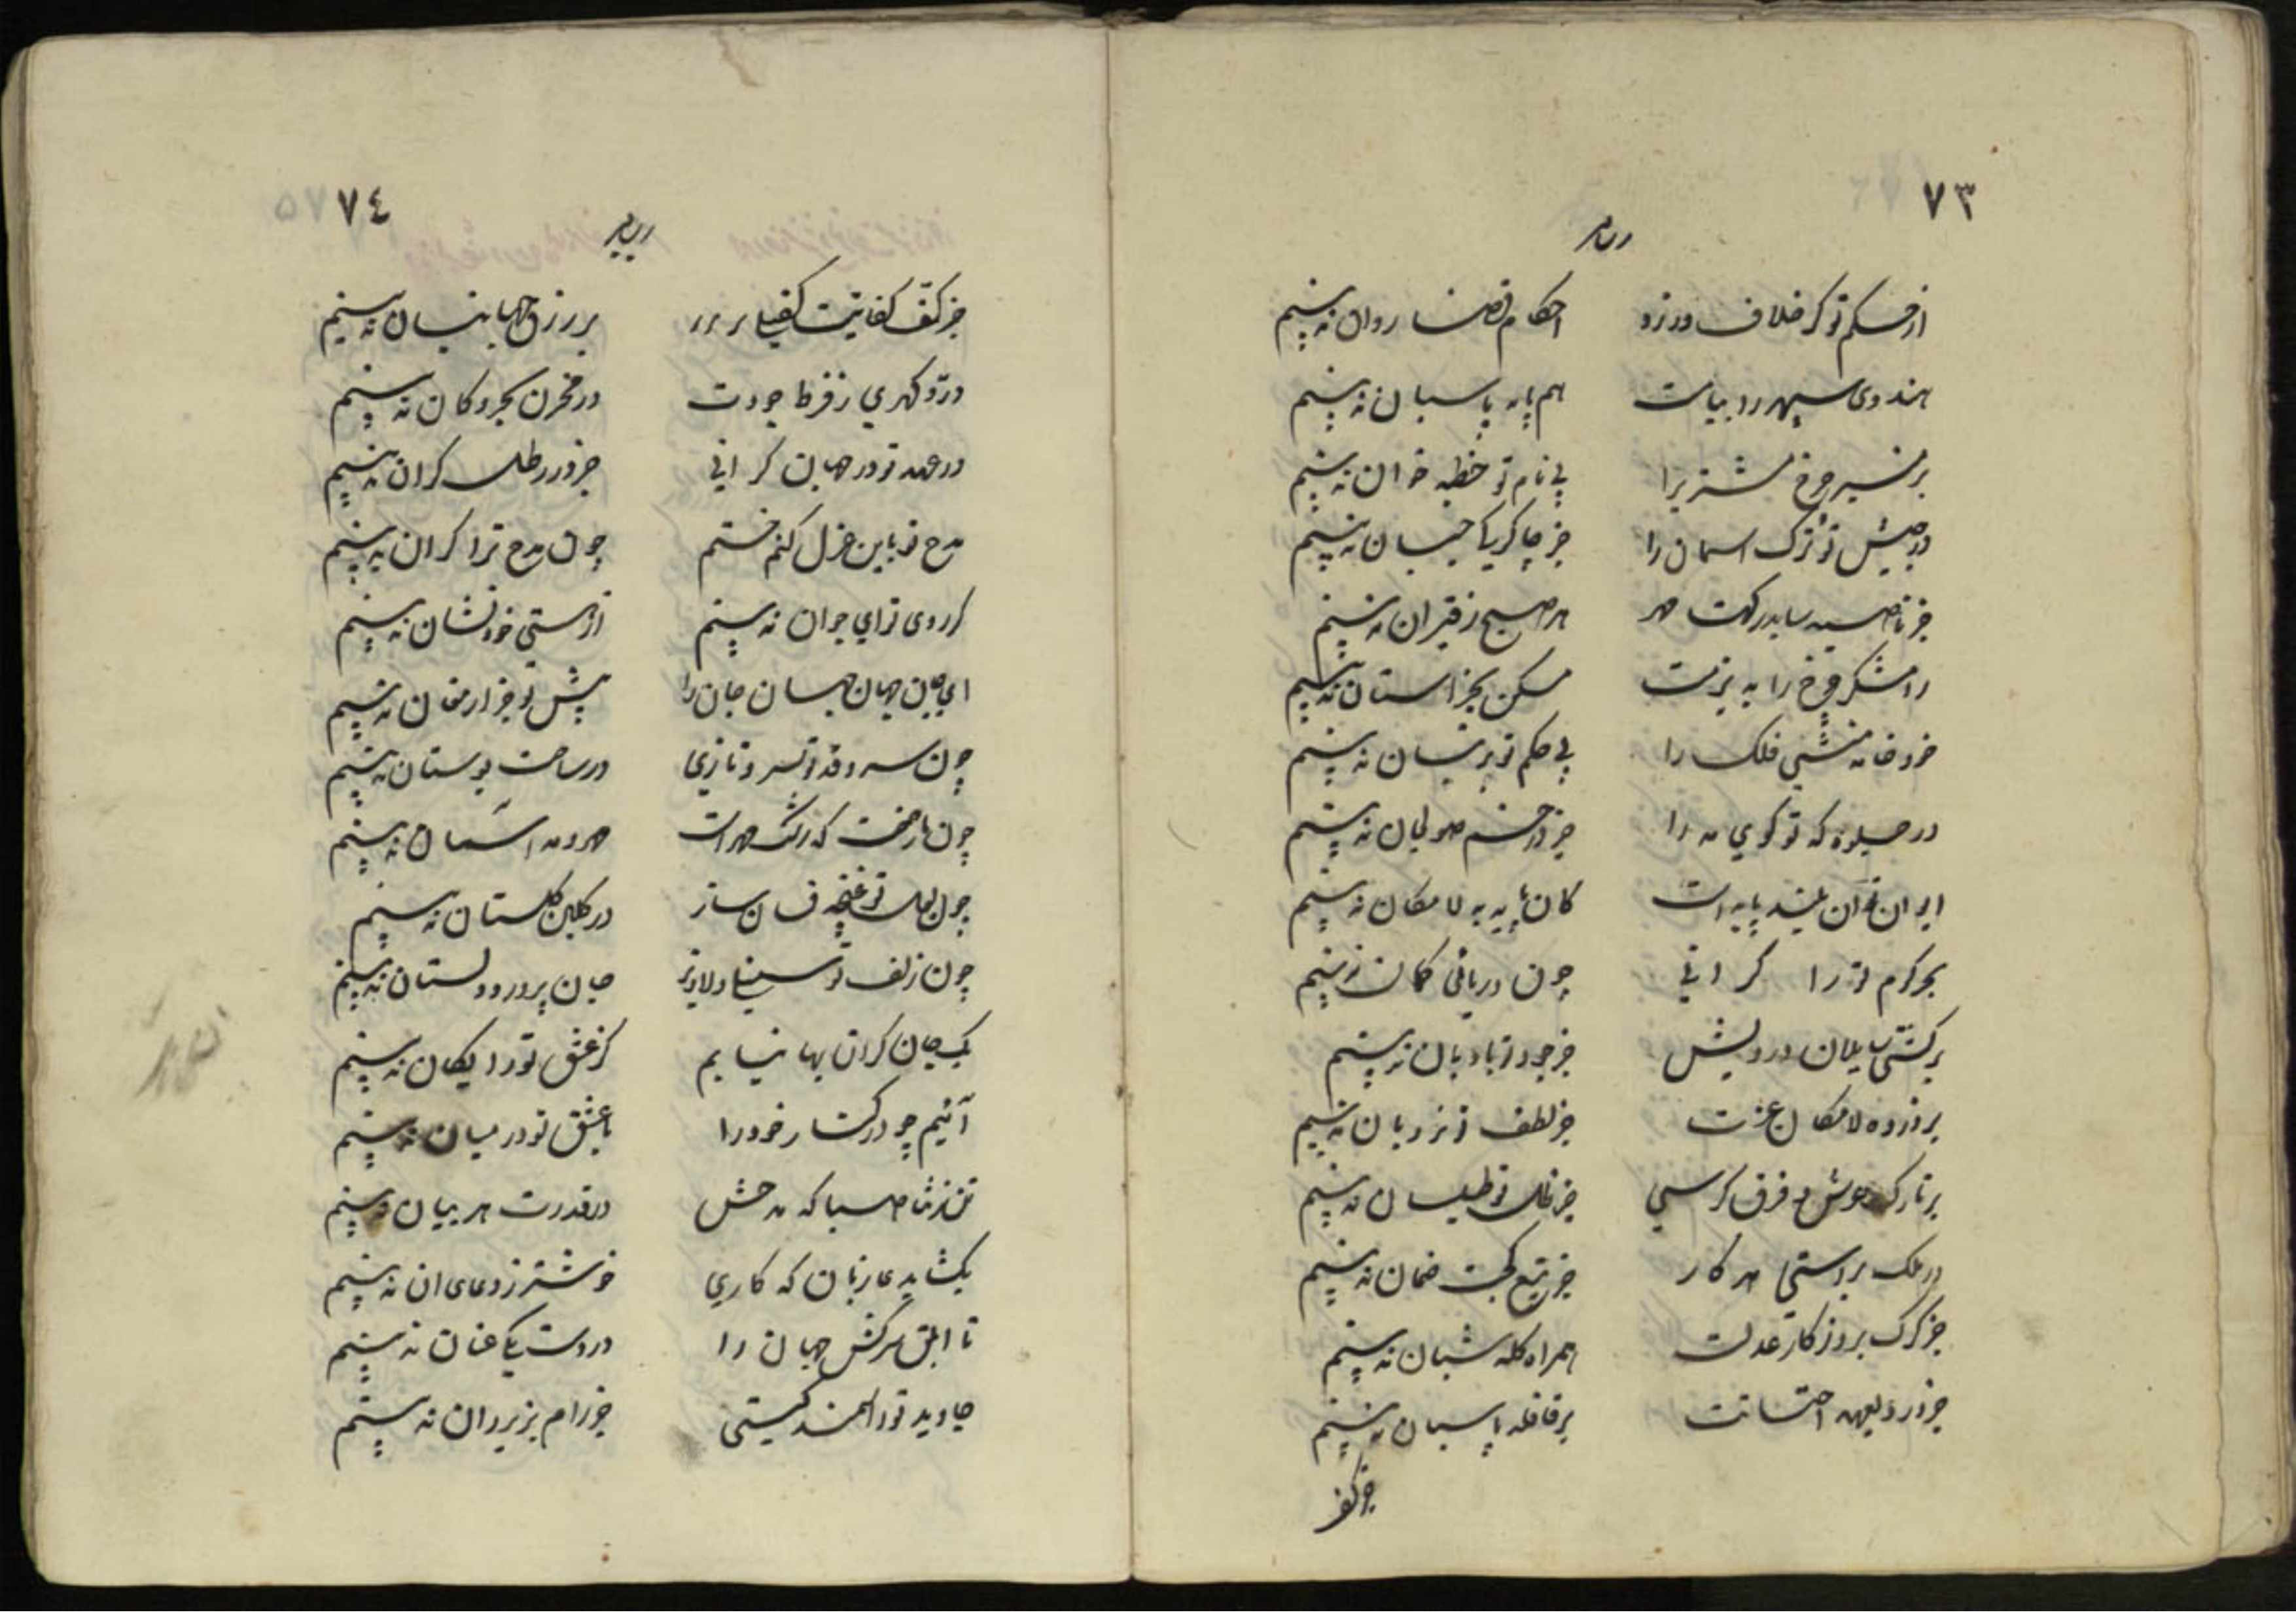 ٧٣
از حکم تو گر خلاف ورزد احکام قضا روان نه بینم
هندوی سپهر را ببامت هم پایه پاسبان نه بینم
بر منبر چرخ مشتریرا بی نام تو خطبه خوان نه بینم
در جیش تو ترک اسمان را جز چاکر
جز ناصیه سا بدرگهت مهر هر صبح ز قیروان نه بینم
رامشگر چرخ را به بزمت مسکن بجز استان نه بینم
خود خامه منشی فلک را بی حکم تو نه بینم
در جلوه که تو گوی مه را جز در خم صولجان نه بینم
ایوان تو آن بلند پایه است کان پایه به لا مکان نه بینم
بحر کرم تو را کرانی چون دریائی کمان نه بینم
بر کشتی سایلان درویش جز جود تو بادبان نه بینم
بر ذروه لامکان عزت جز لطف تو نردبان نه بینم
بر تارک عرش و فرق کرسی جز نعل تو طیلسان نه بینم
در ملک براستی هر کار جز تیغ کجت ضمان نه بینم
جز گرک بروزگار عدلت همراه گله شبان نه بینم
جز در بر قافله پاسبان نه بینم
جز کف
٧٤
جز کف کفایتت کفیلی بر رزق جهانیان نه بینم
در و گهری ز فرط جودت در مخزن بحر و کان نه بینم
در عهد تو در جهان گرانی جز در رطل گران نه بینم
مدح تو باین غزل کنم ختم چون مدح ترا کران نه بینم
کر روی تو ای جوان نه بینم از هستی خود نشان نه بینم
ای جان جهان جهان جان را پیش تو جز ارمغان نه بینم
چون سرو قد تو سرو نازی در ساحت بوستان نه بینم
چون ماه رخت که رشک مهر است مهر و مه اسمان نه بینم
چون لعل تو غنچه فسان ساز در گلبن گلستان نه بینم
چون زلف تو سنبل دلاویز جان پرور و دلستان نه بینم
یک جان گران بها نیابم کز عشق تو رایکان نه بینم
آئیم چو در کنار خود را با عشق تو در میان نه بینم
تن زن صبا که مدحش در قدرت هر بیان نه بینم
بگشا بدعا زبان که کاری خوشتر ز دعای ان نه بینم
تا ابلق سرکش جهان را در دست یکی عنان نه بینم
جاوید تو را سمند گیتی جز رام بزیر ران نه بینم